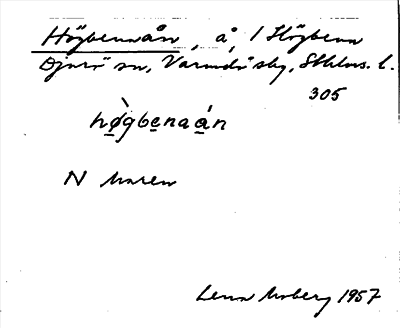 Högbenaån, å, / Högbena
Djurö sn, Värmdö sbg, Sthlms. l.
305
hø̀gbenaán
N Maren
Lena Moberg 1957